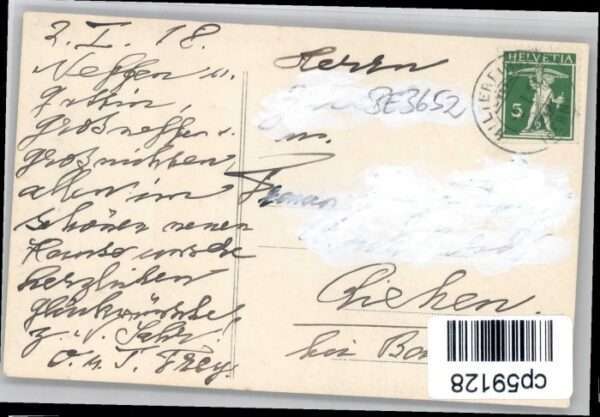 2. I. 18.
Neffen u.
Gattin,
Großneffen u.
Großnichten
allen im
schönen neuen
Hause unsere
herzlichen
Glückwünsche!
z. n. Jahr.
O. u. T. Frey.
Herrn
BE3652
u.
Frau
Riehen.
bei Ba
HELVETIA
5
cp59128